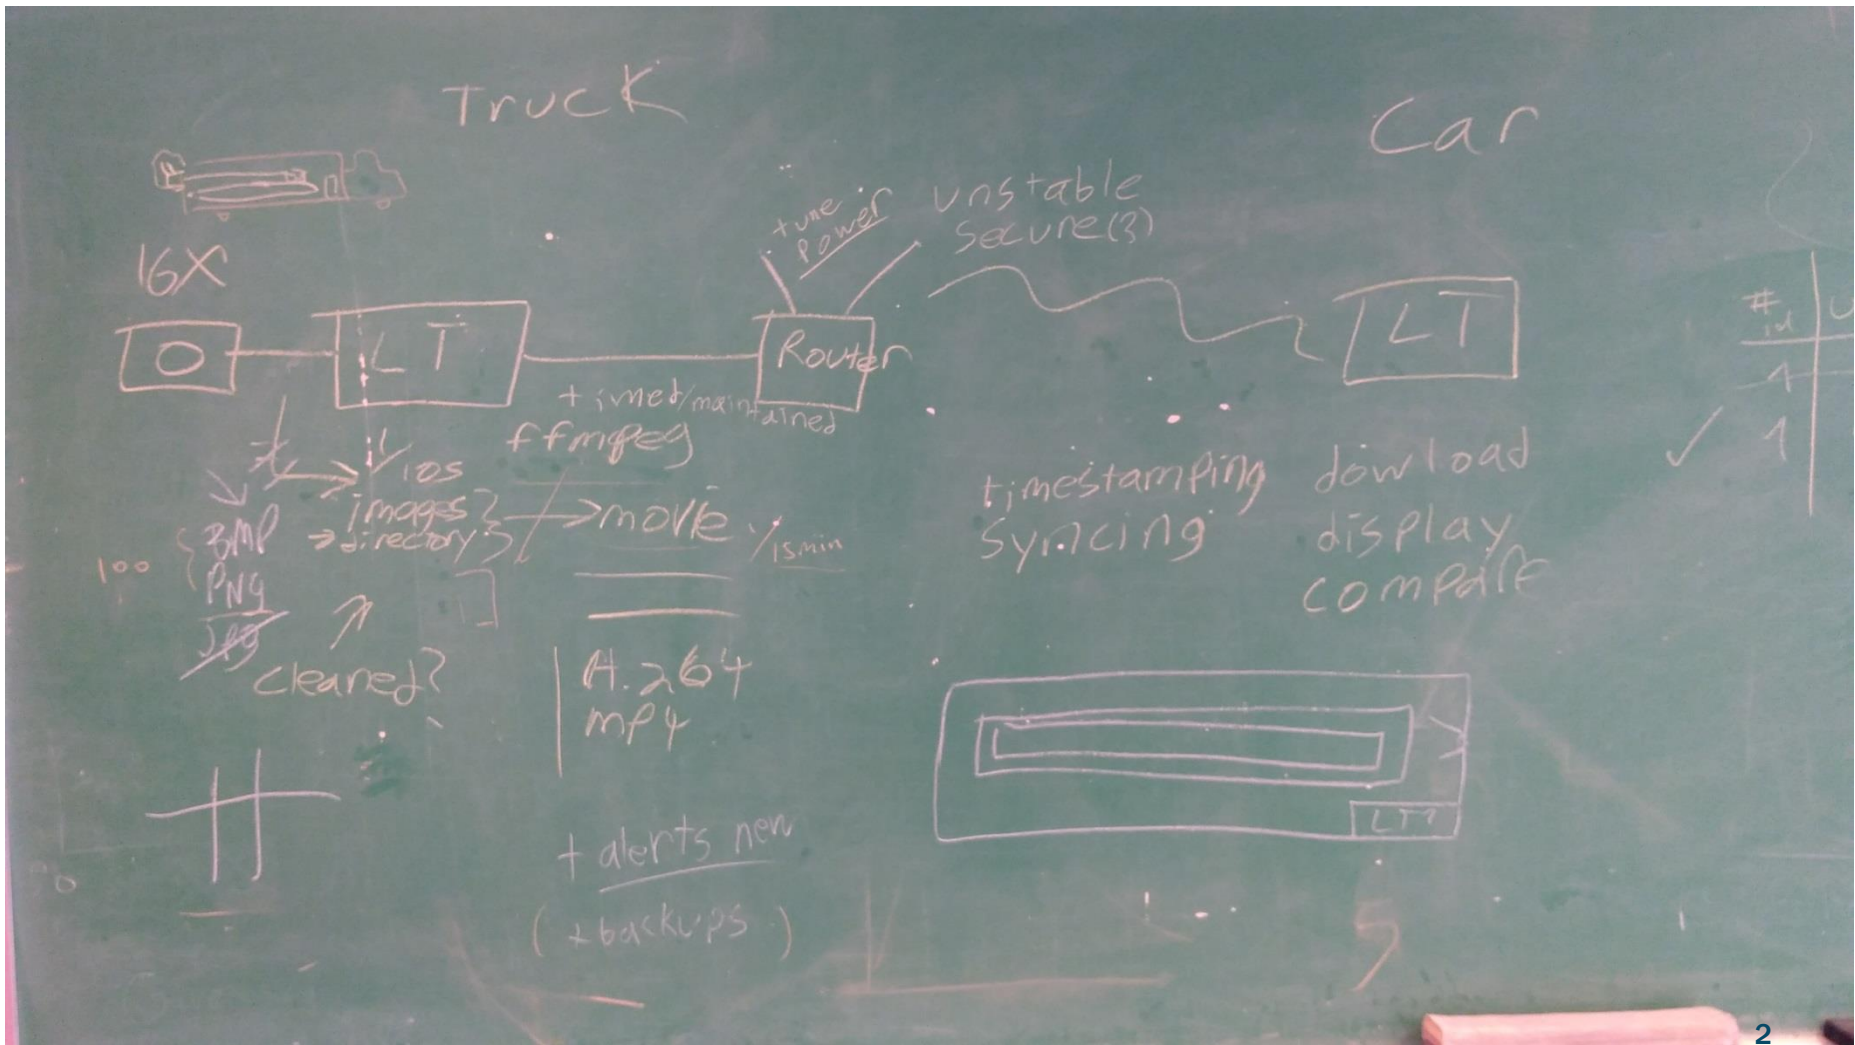 Truck
Car
16X
O
LT
+ tune
Power
Router
unstable
Secure(3)
LT
+ timed/maintained
ffmpeg
10s
images?
→directory
→movie
/15min
100
BMP
PNG
JPG
cleaned?
H.264
mp4
+ alerts new
(+backups)
timestamping
syncing
dowload
display
compare
LT?
#
id
1
1
2